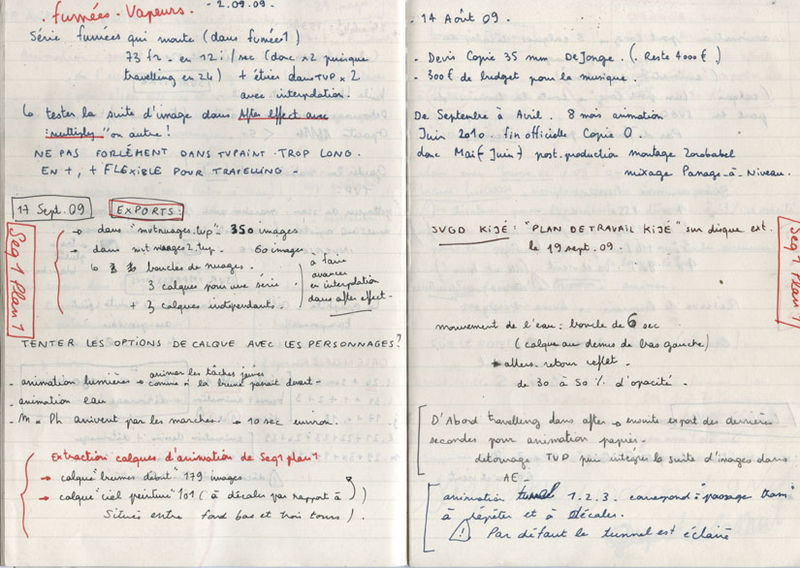 . fumées. Vapeurs. - 2.09.09 -
Série fumées qui monte (dans fumée1)
73 fr - en 12 i/sec (donc x2 puisque
travelling en 24) + étirés dans TVP x 2
avec interpolation.
↳ tester la suite d'image dans After effect avec
"multiply" on autre !
NE PAS FORCÉMENT DANS TVPAINT. TROP LONG.
EN +, + FLEXIBLE POUR TRAVELLING -
17 Sept. 09 EXPORTS:
→ dans "nuages.tvp" - 350 images
→ dans nuit nuages 2.tvp - 60 images
↳ boucles de nuages.
3 calques pour une série
+ 3 calques indépendants.
à faire
avancer
en interpolation
dans after effect -
Seq 1 Plan 1
TENTER LES OPTIONS DE CALQUE AVEC LES PERSONNAGES ?
- animation lumières → animer les tâches jaunes
comme si la brume passait devant -
- animation eau
- M x Ph arrivent par les marches → 10 sec environ.
Extraction calques d'animation de Seq1 plan 1
→ calque "brumes début" 179 images
→ calque "ciel peinture" 101 (à décaler par rapport à )
Situés entre fond bas et trois tours ).
. 14 Août 09.
- Devis Copie 35 mm DeJonge. (. Reste 4000 € )
- 300 € de budget pour la musique.
De Septembre à Avril. 8 mois animation
Juin 2010. fin officielle Copie 0.
donc Mai (- Juin) post. production montage Zorobabel
mixage Panage-à-Niveau.
SVGD KIJÉ : "PLAN DE TRAVAIL KIJÉ" sur disque ext.
le 19 sept. 09.
Seq 1 Plan 1
mouvement de l'eau : boucle de 6 sec
(calque au dessus de bas gauche)
allers. retour reflet -
de 30 à 50 % d'opacité.
D'Abord travelling dans after → ensuite export des dernières
secondes pour animation papier.
détourage TVP puis intégrer la suite d'images dans
AE
animation tunnel 1.2.3. correspond à passage tram
à répéter et à décaler.
! Par défaut le tunnel est éclairé